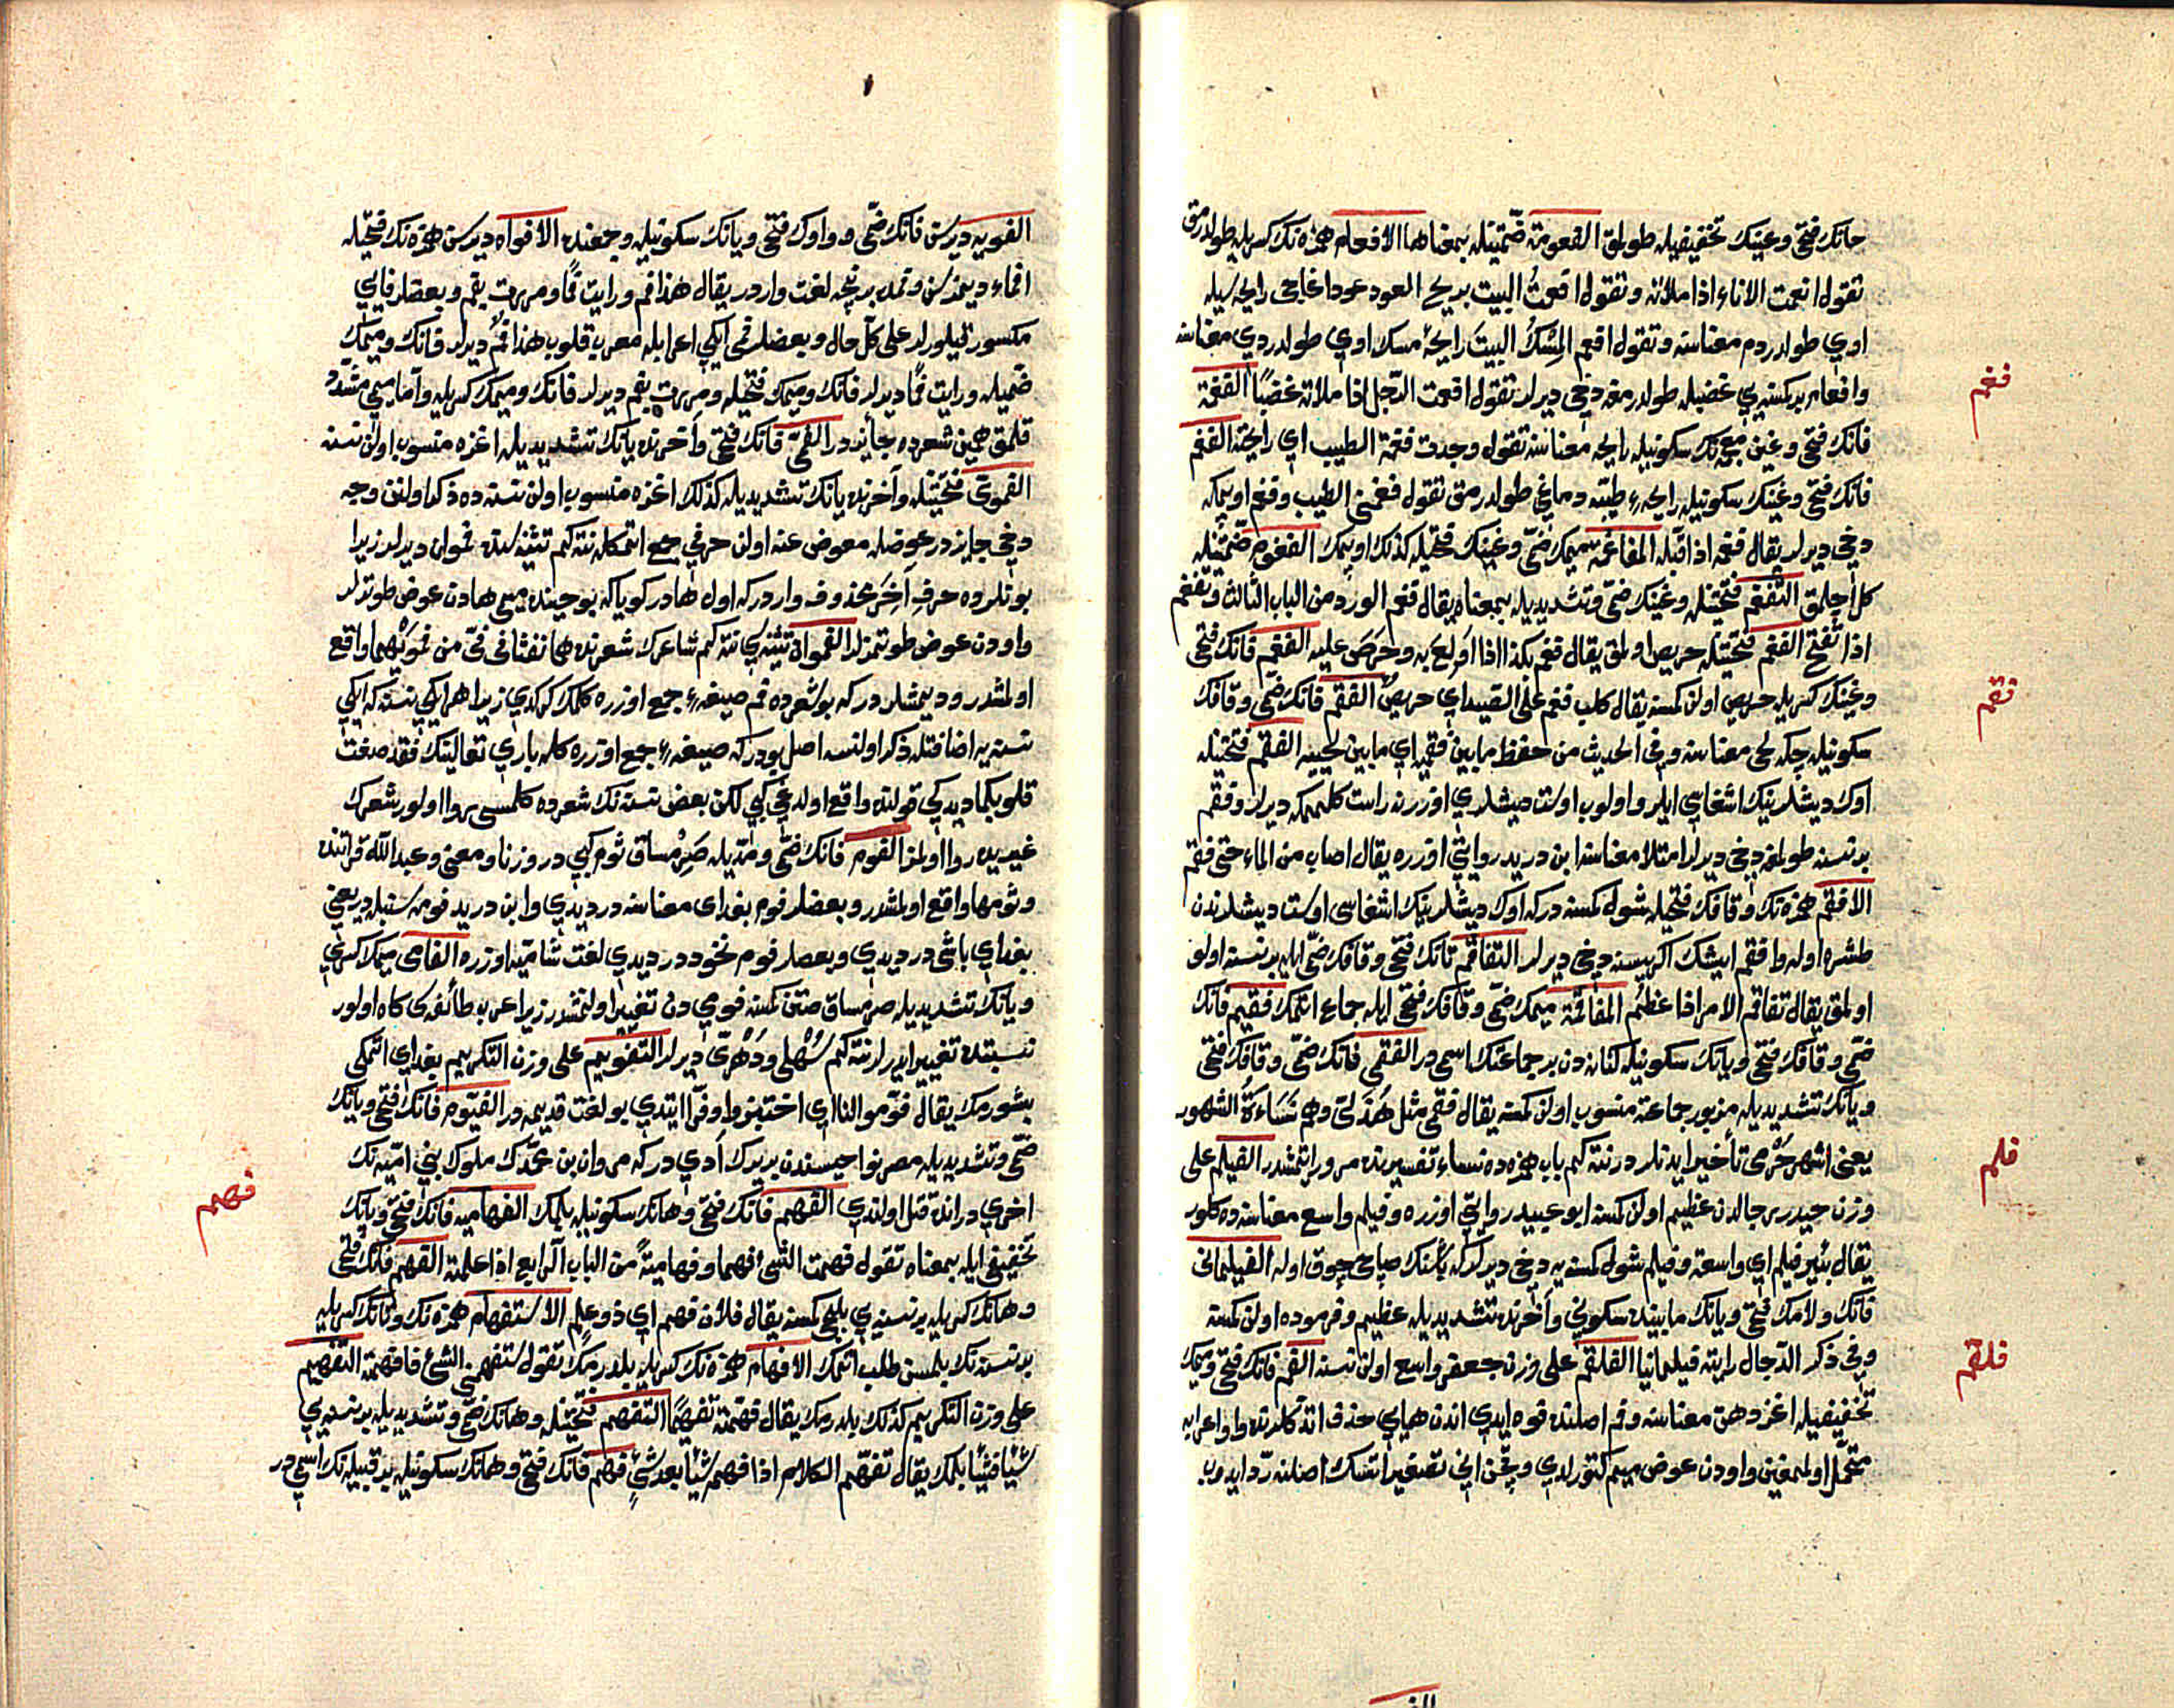 فانك فتحى وعينك تخفيفيله طولمق الفعومة ضمتينله بمعناهما الافعام همزه نك كسريله طولدرمق
تقول افعمت الاناء اذا ملاته وتقول افعمت البيت بريح العود عود اغاجى رايحه سيله
اوى طولدردم معناسنه وتقول افعم المسك البيت رايحۀ مسك اوى طولدردى معناسنه
وافعام بر كمسنه يى غضبيله طولدرمغه دخى ديرلر تقول افعمت الرجل اذا ملاته غضبا الفغمة
فغم
فانك فتحى وغين معجمه نك سكونيله رايحه معناسنه تقول وجدت فغمة الطيب اى رايحته الفغم
فانك فتحى وغينك سكونيله رايحۀ طيبه دماغى طولدرمق تقول فغمنى الطيب وفغم اوپمكه
دخى ديرلر يقال فغمه اذا قبله المفاغمة ميمك ضمى وغينك فتحيله كذلك اوپمك الفغوم ضمتينله
كل اچلمق التفغم فتحتينله وغينك ضمى وتشديديله بمعناه يقال فغم الورد من الباب الثالث وتفغم
اذا تفتح الفغم فتحتينله حريص اولمق يقال فغم بكذا اذا اولع به وحرص عليه الفغم فانك فتحى
وغينك كسريله حريص اولن كمسنه يقال كلب فغم على الصيد اى حريص الفقم فانك ضمى وقافك
فقم
سكونيله چكه لحى معناسنه وفى الحديث من حفظ مابين فقميه اى مابين لحييه الفقم فتحتينله
اوك ديشلرينك اشغاسى ايلرو اولوب اوست ديشلرى اوزرنه راست كلممكه ديرلر وفقم
بر نسنه طولمغه دخى ديرلر امتلا معناسنه ابن دريد روايتى اوزره يقال اصاب من الماء حتى فقم
الافقم همزه نك وقافك فتحيله شول كمسنه دركه اوك ديشلرينك اشغاسى اوست ديشلرندن
طشره اوله وافقم ايشك اكريسنه دخى ديرلر التفاقم تانك فتحى وقافك ضمى ايله بر نسنه اولو
اولمق يقال تفاقم الامر اذا عظم المفاقمة ميمك ضمى وقافك فتحى ايله جماع اتمك فقيم فانك
ضمى وقافك فتحى ويانك سكونيله كنانه دن بر جماعتك اسمى در الفقمى فانك ضمى وقافك فتحى
ويانك تشديديله مزبور جماعته منسوب اولن كمسنه يقال فقمى مثل هذلى وهم نساءة الشهور
يعنى اشهر حرمى تأخير ايدنلردر نته كم باب همزه ده نساء تفسيرنده مرور ايتمشدر الفيلم على
فلم
وزن حيدر رجالدن عظيم اولن كمسنه ابو عبيد روايتى اوزره وفيلم واسع معناسنه ده كلور
يقال بئر فيلم اى واسعة وفيلم شول كمسنه يه دخى ديرلر كه باشنك صاچى چوق اوله الفيلمانى
فانك ولامك فتحى ويانك مابينده سكونى وآخرنده تشديديله عظيم وفرموده اولن كمسنه
وفى ذكر الدجال رايته فيلمانيا الفلقم على وزن جعفر واسع اولن نسنه الفم فانك فتحى وميمك
فلقم
تخفيفيله اغز دهن معناسنه وفم اصلنده فوه ايدى اندن هايى حذف اتدكلرنده واو اعرابه
متحمل اولمغين واودن عوض ميم كتورلدى وچون انى تصغير اتسك اصلنه رد ايدوب
الفويه ديرسن فانك ضمى وواوك فتحى ويانك سكونيله وجمعنده الافواه ديرسن همزه نك فتحيله
افماء ديمزسن وفمده بر نيچه لغت واردر يقال هذا فم ورايت فما ومررت بفم وبعضلر فايى
مكسور قيلورلر على كل حال وبعضلر فمى ايكى اعرابله معرب قلوب هذا فم ديرلر فانك وميمك
ضميله ورايت فما ديرلر فانك وميمك فتحيله ومررت بفم ديرلر فانك وميمك كسريله واما ميمى مشدد
قلمق همين شعرده جايزدر الفمى فانك فتحى وآخرنده يانك تشديديله اغزه منسوب اولن نسنه
الفموى فتحتينله وآخرنده يانك تشديديله كذلك اغزه منسوب اولن نسنه ده ذكر اولنن وجه
دخى جايزدر عوضله معوض عنه اولن حرفى جمع اتمكله نته كم تثنيه سنده فموان ديرلر زيرا
بونلرده حرف آخر محذوف واردركه اول هادر كويا كه بو حيننده ميمى هادن عوض طوتدلر
واودن عوض طوتمزلر الفموان تثنيه سى نته كم شاعرك شعرنده هما نفثا فى فى من فمويهما واقع
اولمشدر وديمشلردركه بو شعرده فم صيغۀ جمع اوزره كلمك كركدى زيرا هر ايكى نسنه كه ايكى
نسنه يه اضافتله ذكر اولنسه اصل بودركه صيغۀ جمع اوزره كله بارى تعالينك فقد صغت
قلوبكما ديدكى قولنده واقع اولدغى كبى لكن بعض نسنه نك شعرده كلمسى روا اولور شعرك
غيريده روا اولمز الفوم فانك ضمى ومديله صرمساق ثوم كبى در وزنا ومعنى وعبد الله قرائتنده
وثومها واقع اولمشدر وبعضلر فوم بغداى معناسنه در ديدى وابن دريد فومه سنبله در يعنى
بغداى باشى در ديدى وبعضلر فوم نخوددر ديدى لغت شاميه اوزره الفامى ميمك كسرى
ويانك تشديديله صرمساق صتن كمسنه فومى دن تغيير اولنمشدر زيرا عرب طائفه سى كاه اولور
نسبتده تغيير ايدرلر نته كم سهلى ودهرى ديرلر التفويم على وزن التكريم بغداى اتمكى
پشورمك يقال فوموا لنا اى اختبزوا وفرا ايتدى بو لغت قديمه در الفيوم فانك فتحى ويانك
ضمى وتشديديله مصر نواحيسندن بر يرك آدى دركه مروان بن محمدك ملوك بنى اميه نك
اخرى در انده قتل اولندى الفهم فانك فتحى وهانك سكونيله بلمك الفهامية فانك فتحى ويانك
فهم
تخفيفى ايله بمعناه تقول فهمت الشئ فهما وفهامية من الباب الرابع اذا علمته الفهم فانك فتحى
وهانك كسريله بر نسنه يى بليجى كمسنه يقال فلان فهم اى ذو علم الاستفهام همزه نك وتانك كسريله
بر نسنه نك بلمسن طلب اتمك الافهام همزه نك كسريله بلدرمك تقول استفهمنى الشئ فافهمته التفهيم
على وزن التكريم كذلك بلدرمك يقال فهمته تفهيما التفهم فتحتينله وهانك ضمى وتشديديله بر نسنه يى
شيئا فشيئا بلمك يقال تفهم الكلام اذا فهم شيئا بعد شئ فهم فانك فتحى وهانك سكونيله بر قبيله نك اسمى در